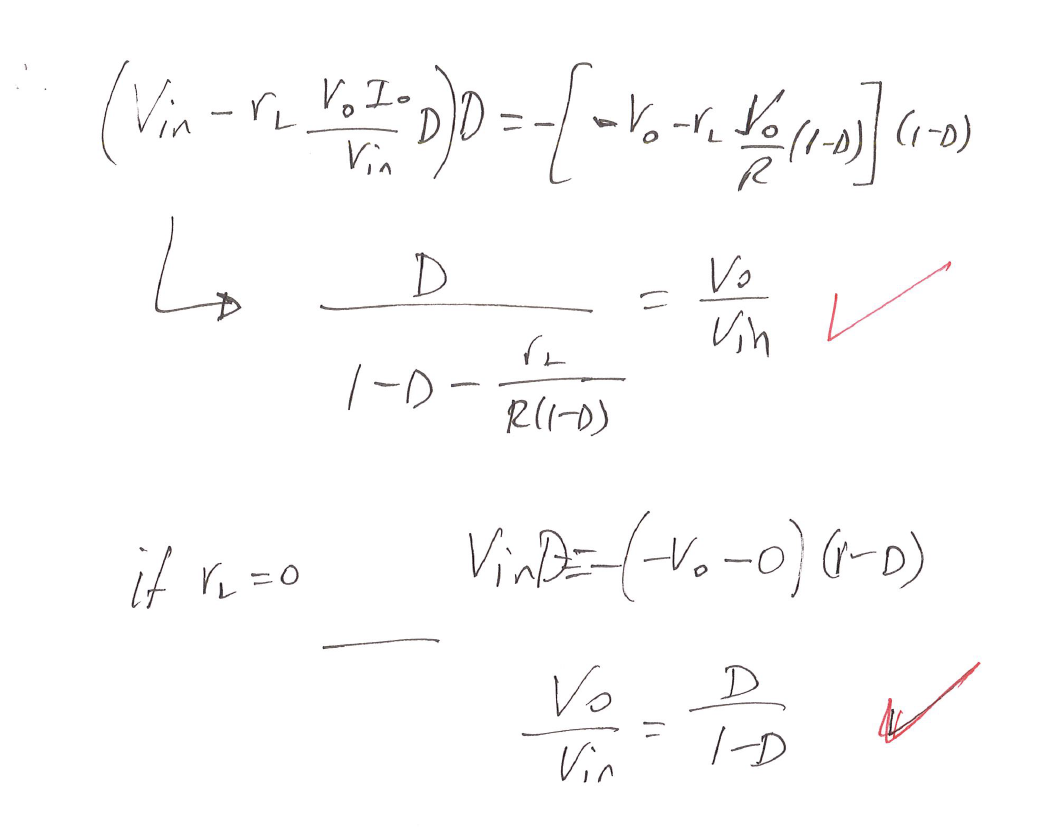 ∴ (Vin - rL (Vo Io / Vin) D) D = -[-Vo - rL (Vo / R) (1-D)] (1-D)
↳ D / (1 - D - rL / (R(1-D))) = Vo / Vin ✓
if rL = 0 VinD = -(-Vo - 0) (1-D)
Vo / Vin = D / (1-D) ✓